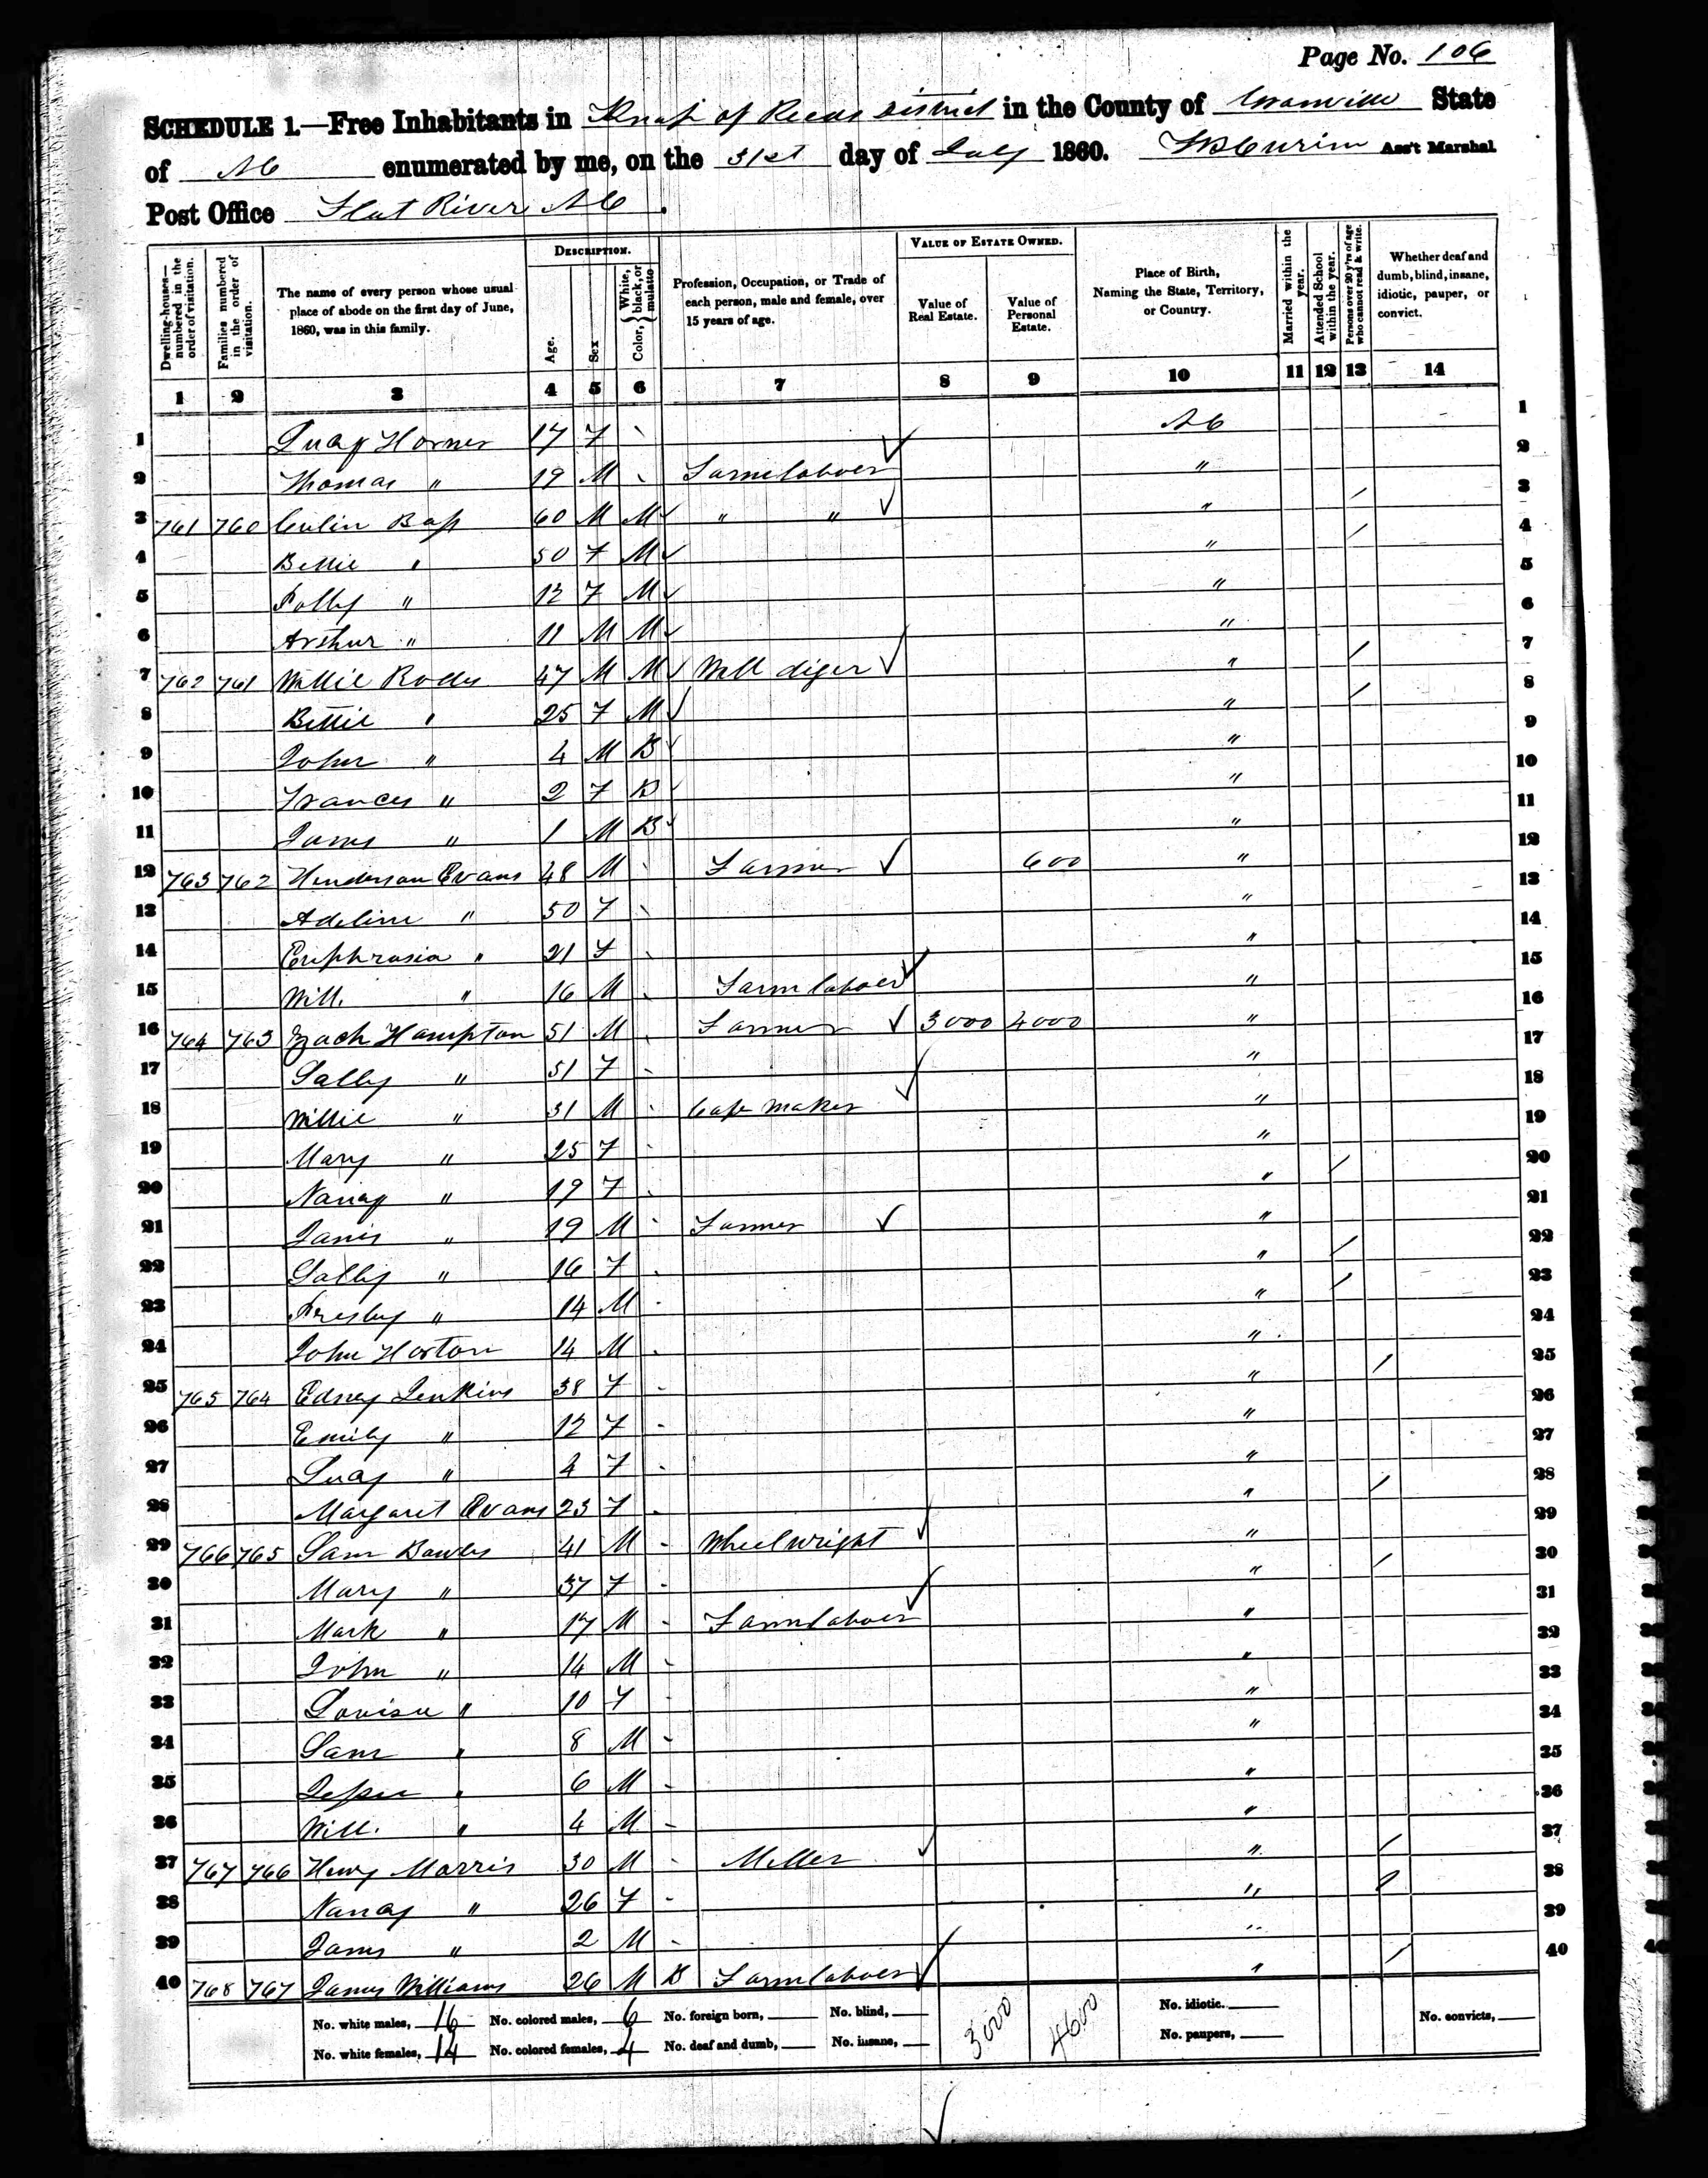 Page No. 106
SCHEDULE 1.—Free Inhabitants in Knap of Reeds District in the County of Granville State
of NC enumerated by me, on the 31st day of July 1860. Ass't Marshal
Post Office Flat River NC.
Dwelling-houses—numbered in the order of visitation.
Families numbered in the order of visitation.
The name of every person whose usual place of abode on the first day of June, 1860, was in this family.
DESCRIPTION.
Age.
Sex
Color, White, black, or mulatto
Profession, Occupation, or Trade of each person, male and female, over 15 years of age.
VALUE OF ESTATE OWNED.
Value of Real Estate.
Value of Personal Estate.
Place of Birth, Naming the State, Territory, or Country.
Married within the year.
Attended School within the year.
Persons over 20 y'rs of age who cannot read & write.
Whether deaf and dumb, blind, insane, idiotic, pauper, or convict.
1 2 3 4 5 6 7 8 9 10 11 12 13 14
1 Lucy Horner 17 F NC 1
2 Thomas " 19 M Farm laborer " 2
3 761 760 Culin Bass 60 M M " " " / 3
4 Bettie " 50 F M " / 4
5 Polly " 12 F M " 5
6 Arthur " 11 M M " 6
7 762 761 Willie 47 M M Well diger " / 7
8 Bettie " 25 F M " / 8
9 John " 4 M B " 9
10 Frances " 2 F B " 10
11 James " 1 M B " 11
12 763 762 Henderson Evans 48 M Farmer 600 " 12
13 Adeline " 50 F " 13
14 Euphrasia " 21 F " 14
15 Will. " 16 M Farm laborer " 15
16 764 763 Zach Hampton 51 M Farmer 3000 4000 " 16
17 Sally " 51 F " 17
18 Willie " 31 M maker " 18
19 Mary " 25 F " 19
20 Nancy " 19 F " / 20
21 " 19 M Farmer " 21
22 Sally " 16 F " / 22
23 Presley " 14 M " / 23
24 John Horton 14 M " 24
25 765 764 Edney Jenkins 38 F " / 25
26 Emily " 12 F " 26
27 Lucy " 4 F " 27
28 Margaret Evans 23 F " / 28
29 766 765 Sam Bowles 41 M Wheelwright " 29
30 Mary " 37 F " / 30
31 Mark " 17 M Farm laborer " 31
32 John " 14 M " 32
33 Louisa " 10 F " 33
34 Sam " 8 M " 34
35 Jesse " 6 M " 35
36 Will. " 4 M " 36
37 767 766 Henry Morris 30 M Miller " / 37
38 Nancy " 26 F " / 38
39 James " 2 M " 39
40 768 767 James Williams 26 M B Farm laborer " / 40
No. white males, 16 No. colored males, 6 No. foreign born, No. blind, 3000 4600 No. idiotic. No. convicts,
No. white females, 14 No. colored females, 4 No. deaf and dumb, No. insane, No. paupers,